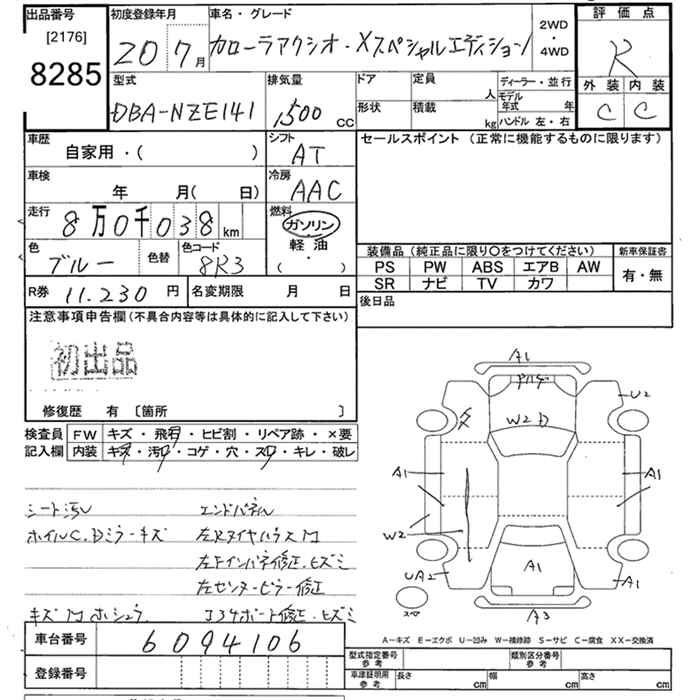 出品番号
[2176]
8285
初度登録年月
20 7月
車名・グレード
カローラアクシオ・Xスペシャルエディション
2WD
・
4WD
評価点
R
外装 内装
C C
型式
DBA-NZE141
排気量
1500 cc
ドア
形状
定員
人
積載
kg
ディーラー・並行
モデル年式 年
ハンドル 左・右
車歴
自家用・( )
シフト
AT
セールスポイント (正常に機能するものに限ります)
車検
年 月( 日)
冷房
AAC
走行
8万0千038km
燃料
ガソリン
軽油
( ・ )
色
ブルー
色替
色コード
8R3
装備品 (純正品に限り〇をつけてください)
PS PW ABS エアB AW
SR ナビ TV カワ
新車保証書
有・無
R券 11.230 円
名変期限 月 日
後日品
注意事項申告欄(不具合内容等は具体的に記入して下さい)
初出品
修復歴 有 〔箇所 〕
検査員記入欄
FW キズ・飛石・ヒビ割・リペア跡・×要
内装 キズ・汚レ・コゲ・穴・スレ・キレ・破レ
シート汚レ エンドパネル
ホイルC.Dミラーキズ 左Rタイヤハウス M
左Fインパネ修正.ヒズミ
左センターピラー修正
キズ M ホシュウ
修正.ヒズミ
A1
U2
W2
A1
A1
W2
UA2
A1
A1
A3
スペ
車台番号 6094106
登録番号
A-キズ E-エクボ U-凹み W-補修跡 S-サビ C-腐食 XX-交換済
型式指定番号 参考
類別区分番号 参考
車庫証明用 参考
長さ cm
幅 cm
高さ cm